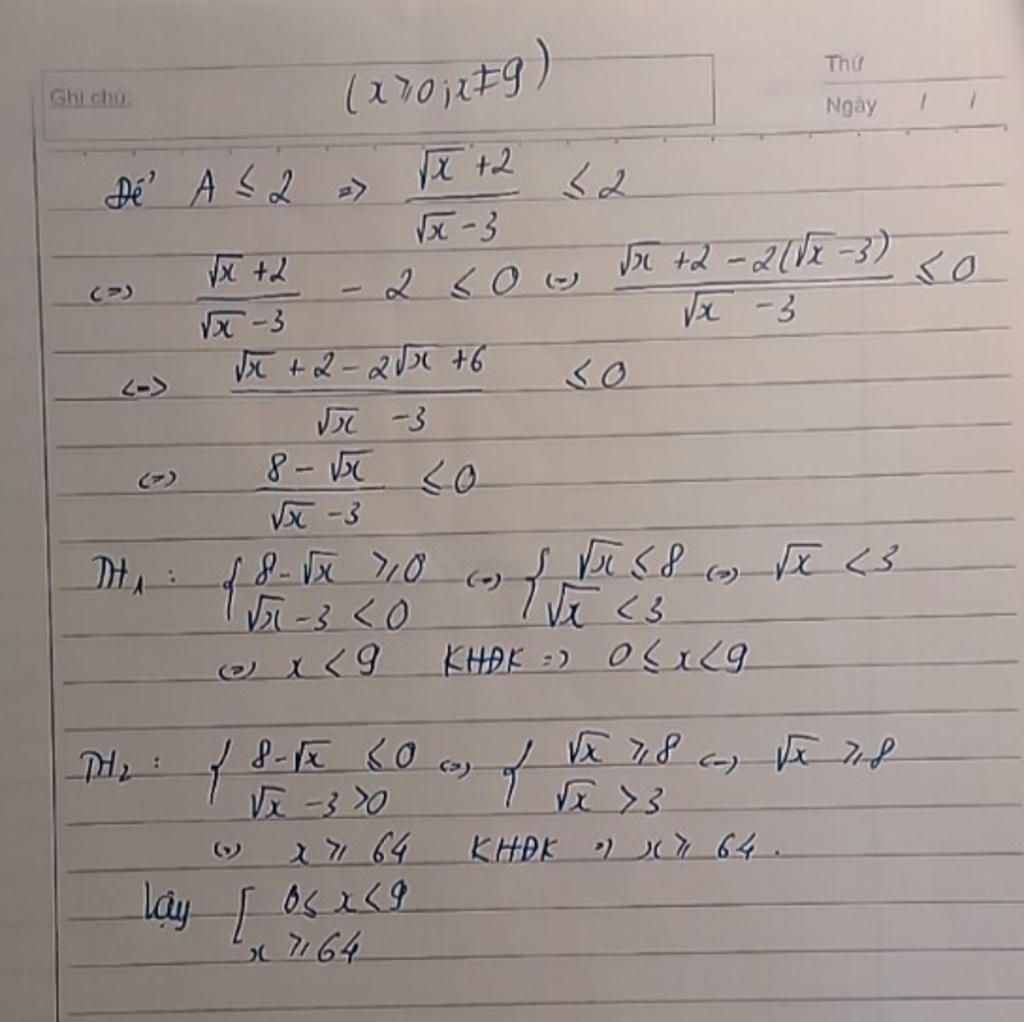 Ghi chú: (x ≥ 0; x ≠ 9) Thứ
Ngày / /
Để A ≤ 2 => (√x + 2)/(√x - 3) ≤ 2
<=> (√x + 2)/(√x - 3) - 2 ≤ 0 <=> (√x + 2 - 2(√x - 3))/(√x - 3) ≤ 0
<=> (√x + 2 - 2√x + 6)/(√x - 3) ≤ 0
<=> (8 - √x)/(√x - 3) ≤ 0
TH1: { 8 - √x ≥ 0 <=> { √x ≤ 8 <=> √x < 3
√x - 3 < 0 √x < 3
<=> x < 9 KHĐK => 0 ≤ x < 9
TH2: { 8 - √x ≤ 0 <=> { √x ≥ 8 <=> √x ≥ 8
√x - 3 > 0 √x > 3
<=> x ≥ 64 KHĐK => x ≥ 64.
Vậy [ 0 ≤ x < 9
x ≥ 64